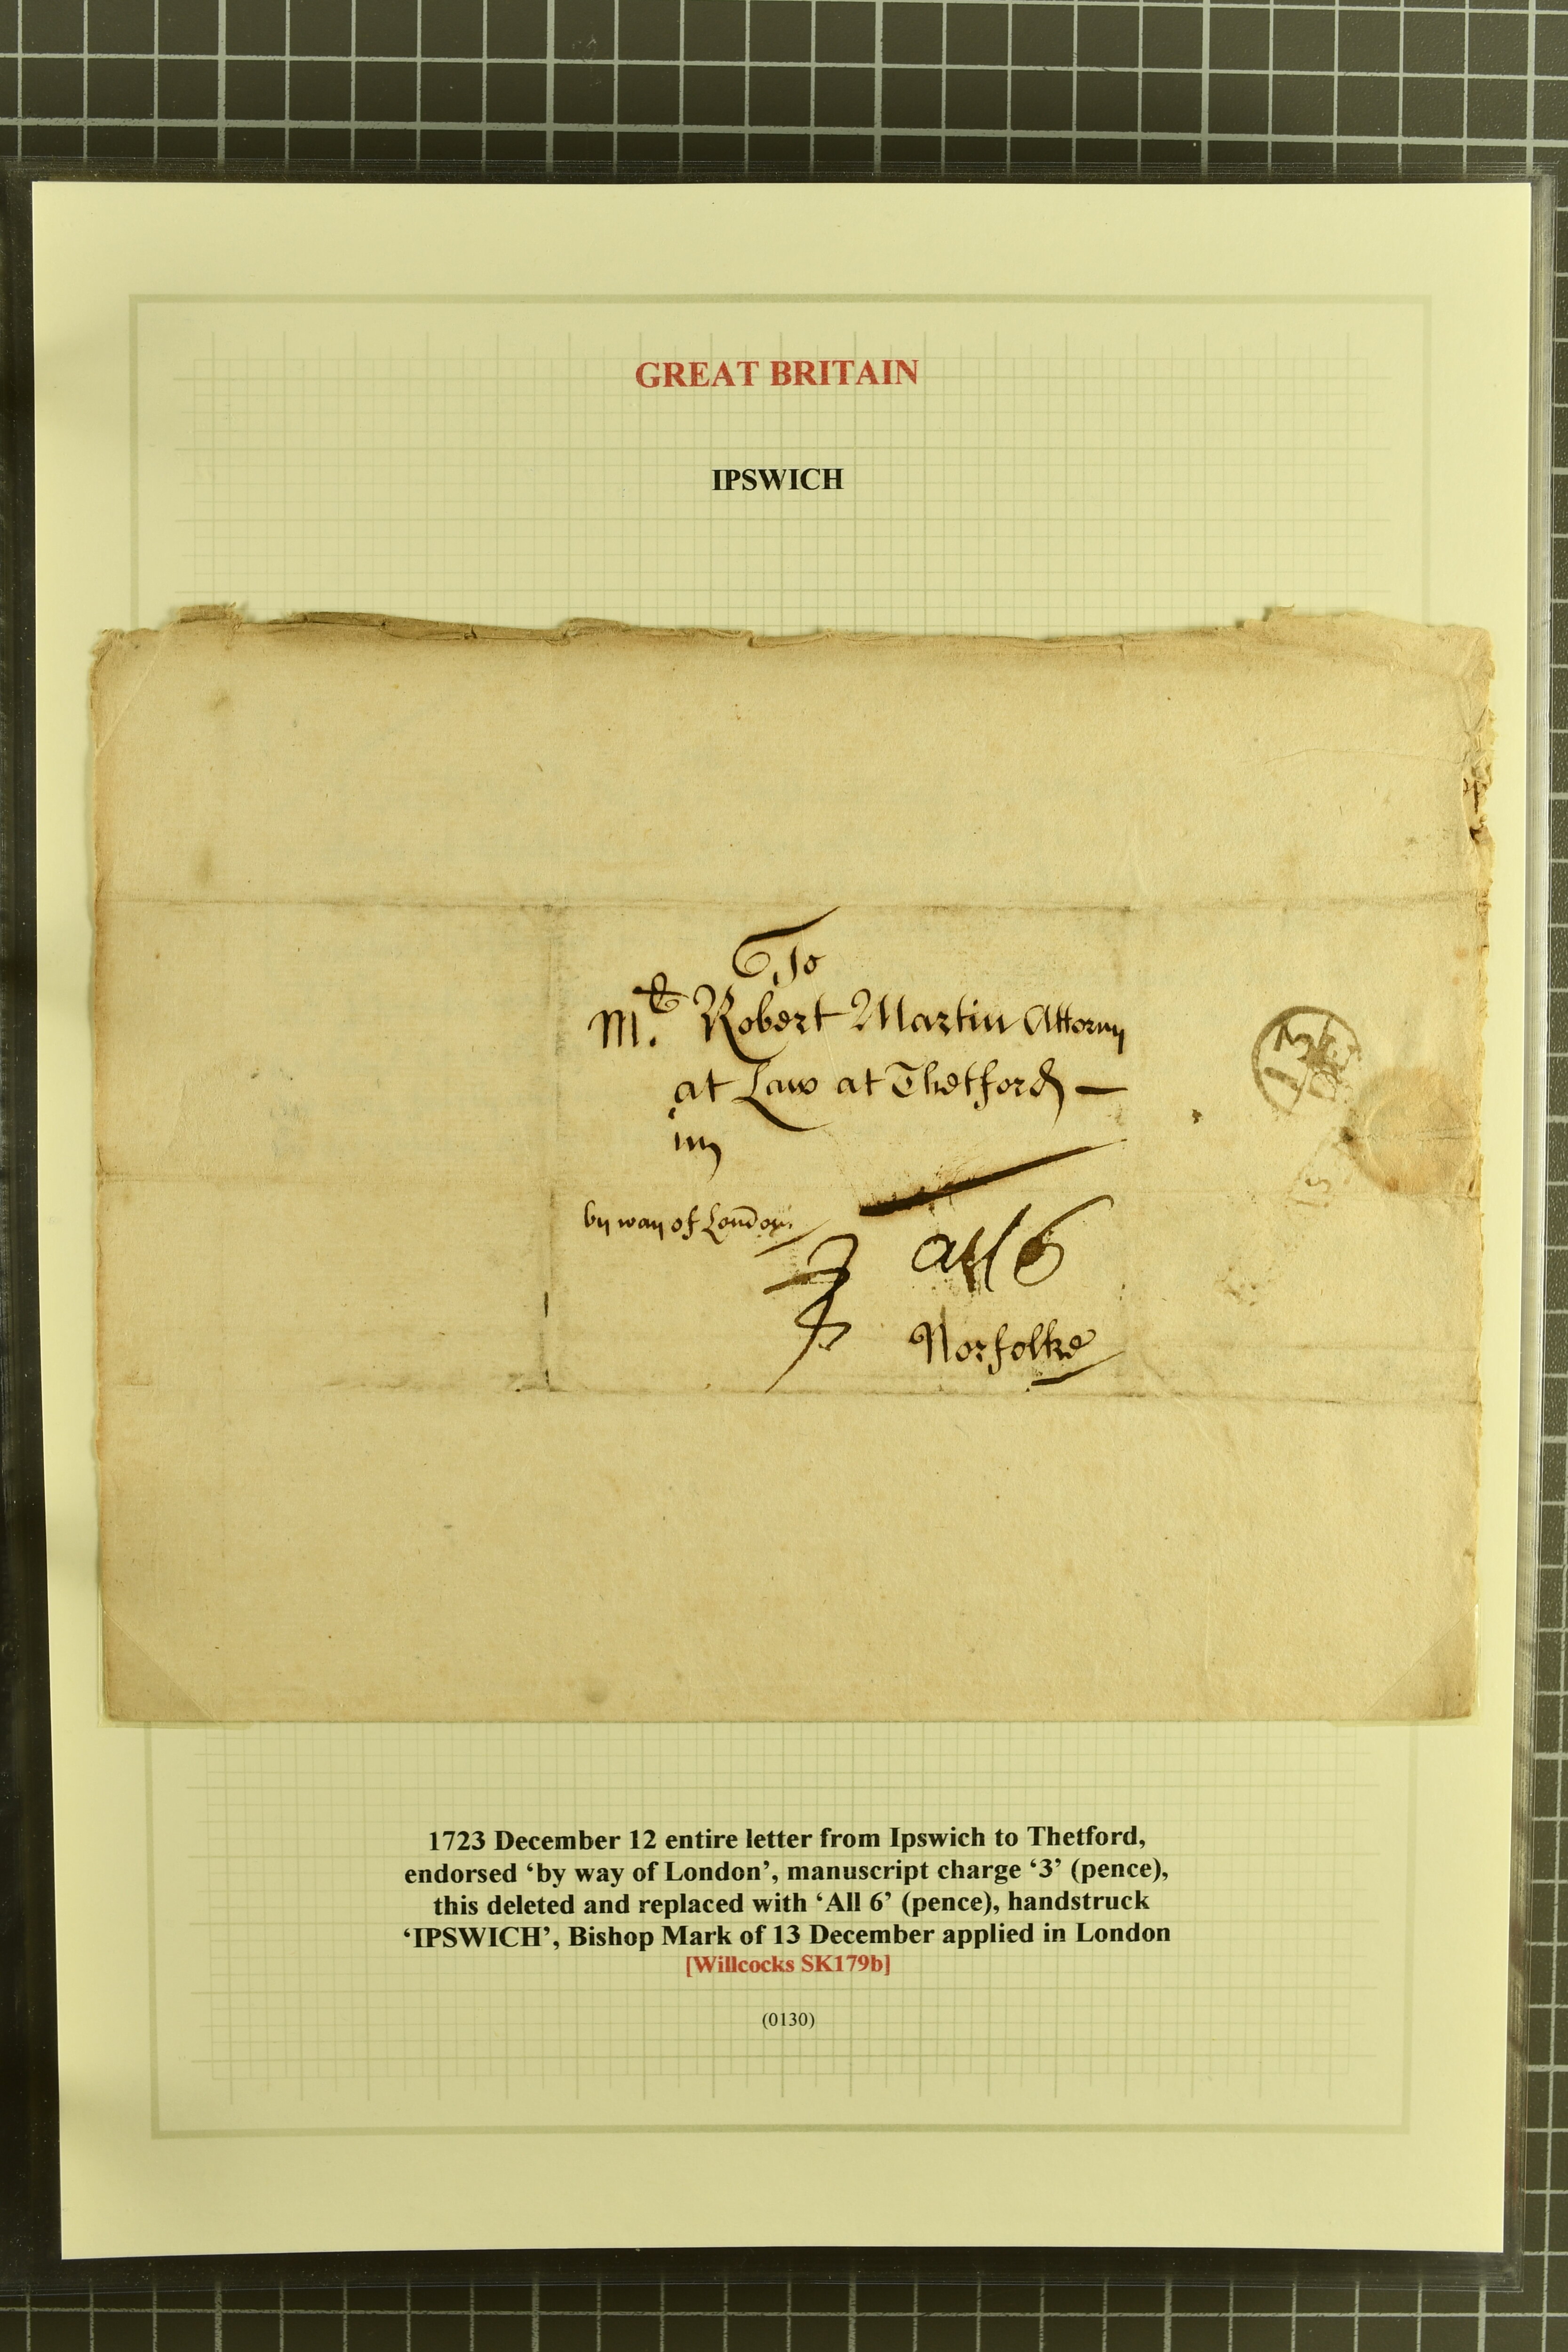 GREAT BRITAIN
IPSWICH
To
Mr. Robert Martin Attorny
at Law at Thetford —
in
by way of London
3
all 6
Norfolke
13
DE
IS
1723 December 12 entire letter from Ipswich to Thetford,
endorsed ‘by way of London’, manuscript charge ‘3’ (pence),
this deleted and replaced with ‘All 6’ (pence), handstruck
‘IPSWICH’, Bishop Mark of 13 December applied in London
[Willcocks SK179b]
(0130)